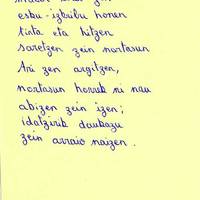 esku-izkribu honen
tinta eta hitzen
saretzen zein nortasun
Ari zen argitzen,
nortasun horrek ni nau
abizen zein izen;
idatzirik daukazu
zein arraio naizen.